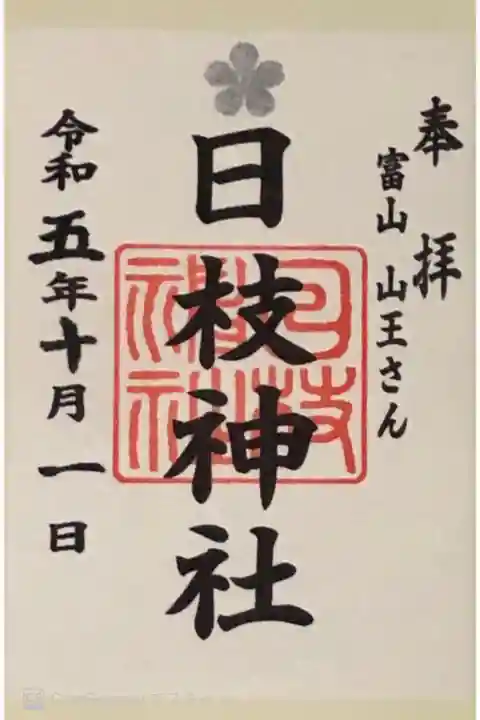 奉拝
富山 山王さん
日枝神社
令和五年十月一日